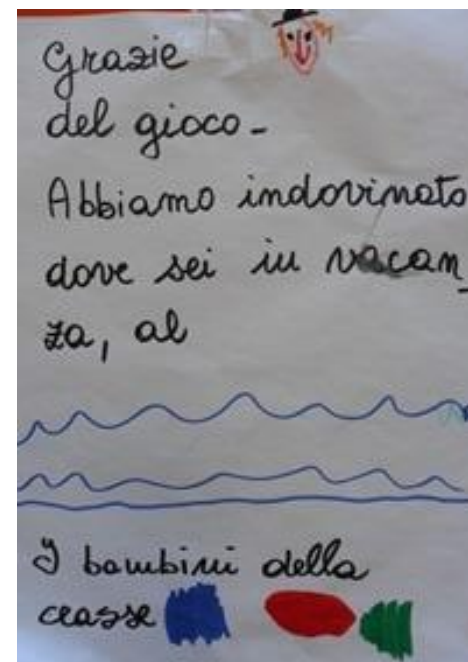 Grazie
del gioco -
Abbiamo indovinato
dove sei in vacan_
za, al
I bambini della
classe